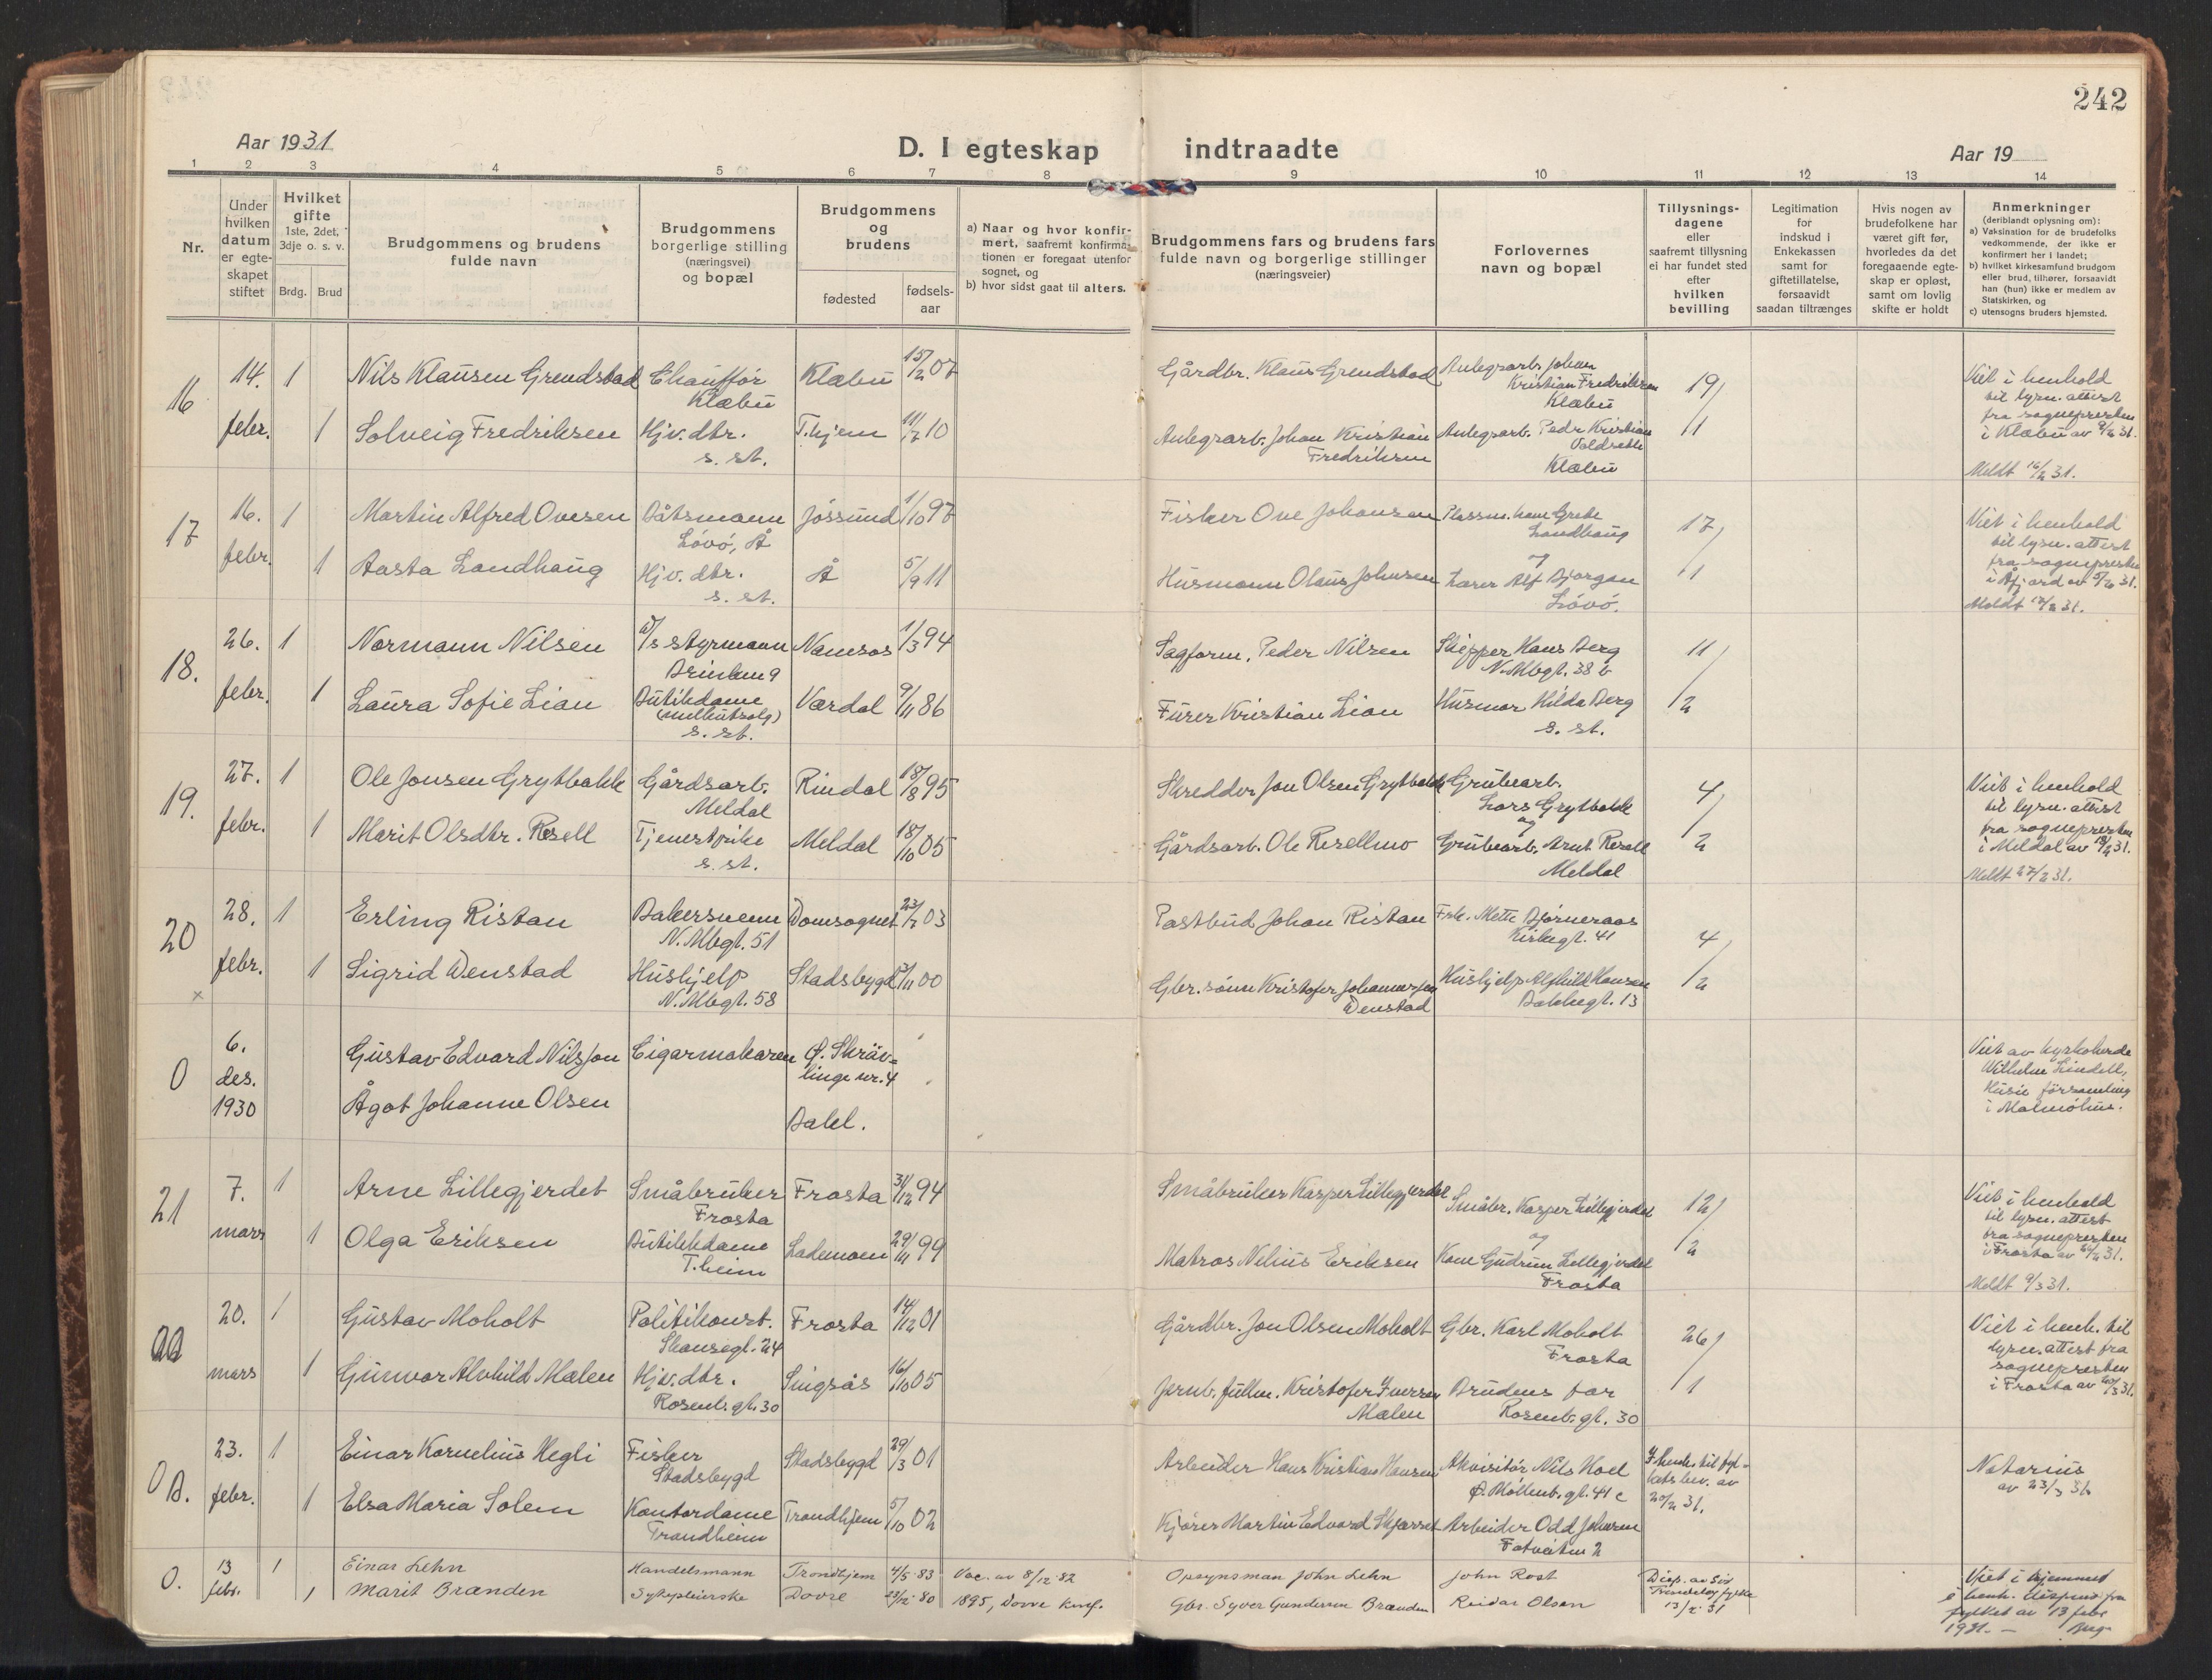 242
Aar 1931
D. I egteskap indtraadte
Aar 19
1 2 3 4 5 6 7 8 9 10 11 12 13 14
Nr.
Under
hvilken
datum
er egte-
skapet
stiftet
Hvilket
gifte
1ste, 2det,
3dje o. s. v.
Brdg. Brud
Brudgommens og brudens
fulde navn
Brudgommens
borgerlige stilling
(næringsvei)
og bopæl
Brudgommens
og
brudens
fødested
fødsels-
aar
a) Naar og hvor konfir-
mert, saafremt konfirma-
tionen er foregaaet utenfor
sognet, og
b) hvor sidst gaat til alters.
Brudgommens fars og brudens fars
fulde navn og borgerlige stillinger
(næringsveier)
Forlovernes
navn og bopæl
Tillysnings-
dagene
eller
saafremt tillysning
ei har fundet sted
efter
hvilken
bevilling
Legitimation
for
indskud i
Enkekassen
samt for
giftetillatelse,
forsaavidt
saadan tiltrænges
Hvis nogen av
brudefolkene har
været gift før,
hvorledes da det
foregaaende egte-
skap er opløst,
samt om lovlig
skifte er holdt
Anmerkninger
(deriblandt oplysning om):
a) Vaksination for de brudefolks
vedkommende, der ikke er
konfirmert her i landet;
b) hvilket kirkesamfund brudgom
eller brud, tilhører, forsaavidt
han (hun) ikke er medlem av
Statskirken, og
c) utensogns bruders hjemsted.
16
14.
febr.
1
1
Nils Klausen Grendstad
Chauffør
Klæbu
Klæbu
15/2 07
Gårdbr. Klaus Grendstad
Anlegsarb. Johan
Kristian Fredriksen
Klæbu
19/1
Viet i henhold
til lysn. attest
fra sognepresten
i Klæbu av 9/2 31.
Meldt 16/2 31.
Solveig Fredriksen
Hjv. dtr.
s. st.
T.hjem
11/7 10
Anlegsarb. Johan Kristian
Fredriksen
Anlegsarb. Peder Kristian
Klæbu
17
16.
febr.
1
1
Martin Alfred Ovesen
Båtsmann
Løvø, Å
Jøssund
1/10 97
Fisker Ove Johansen
Landhaug
og
17/1
Viet i henhold
til lysn. attest
fra sognepresten
i Åfjord av 5/2 31.
Meldt 17/2 31.
Aasta Landhaug
Hjv. dtr.
s. st.
Å
5/9 11
Husmann Olaus Johnsen
Lærer Alf Bjørgan
Løvø.
18.
26.
febr.
1
1
Normann Nilsen
Styrmann
Brinken 9
Namsos
1/3 94
Sagform. Peder Nilsen
Skipper Hans Berg
N. Mbgt. 38 b
11/2
Laura Sofie Lian
Butikdame
(melkeutsalg)
s. st.
Værdal
9/11 86
Furer Kristian Lian
Husmor Hilda Berg
s. st.
19.
27.
febr.
1
1
Ole Jonsen Grytbakk
Gårdsarb.
Meldal
Rindal
18/8 95
Skredder Jon Olsen Grytbakk
Grubearb.
Lars Grytbakk
og
4/2
Viet i henhold
til lysn. attest
fra sognepresten
i Meldal av 18/2 31.
Meldt 27/2 31.
Marit Olsdtr. Resell
Tjenestpike
s. st.
Meldal
18/10 05
Gårdsarb. Ole Resellmo
Grubearb. Arnt Resell
Meldal
20
28.
febr.
1
1
Erling Ristan
Bakersvenn
N. Mbgt. 51
Domsognet
23/7 03
Postbud Johan Ristan
Frk. Mette Bjørneraas
Kirkegt. 41
4/2
Sigrid Denstad
Hushjelp
N. Mbgt. 58
Stadsbygd
3/11 00
Gbr. sønn Kristofer Johannessen
Denstad
Hushjelp Alfhild Hansen
Bakkegt. 13
×
0
6.
des.
1930
Gustav Edvard Nilsson
Cigarmakaren
Ø. Skräv-
linge nr. 4
Viet av kyrkoherde
Wilhelm Lindell,
Husie församling
i Malmöhus.
Ågot Johanne Olsen
Bakl.
21
7.
mars
1
1
Arne Lillegjerdet
Småbruker
Frosta
Frosta
31/12 94
Småbruker Kasper Lillegjerdet
Småbr. Kasper Lillegjerdet
og
12/2
Viet i henhold
til lysn. attest
fra sognepresten
i Frosta av 26/2 31.
Meldt 9/3 31.
Olga Eriksen
Butikkdame
T.heim
Lademoen
29/11 99
Matros Nilius Eriksen
Kone Gudrun Lillegjerdet
Frosta
22
20.
mars
1
1
Gustav Moholt
Politikonst.
Skansegt. 24
Frosta
14/12 01
Gårdbr. Jon Olsen Moholt
Gbr. Karl Moholt
Frosta
26/1
Viet i henh. til
lysn. attest fra
sognepresten
i Frosta av 20/3 31.
Gunvor Alvhild Mælen
Hjv. dtr.
Rosenb. gt. 30
Singsås
16/10 05
Jernb. fullm. Kristofer Iversen
Mælen
Brudens far
Rosenb. gt. 30
0 B.
23.
febr.
1
1
Einar Kornelius Hegli
Fisker
Stadsbygd
Stadsbygd
29/3 01
Arbeider Hans Kristian Hansen
Akvisitør Nils Hoel
Ø. Møllenb. gt. 41 c
I henh. til fyl-
kets bev. av
20/2 31.
Notarius
av 23/3 31
Elsa Maria Solem
Kontordame
Trondheim
Trondhjem
5/10 02
Kjører Martin Edvard
Arbeider Odd Johnsen
Fatveiten 2
0.
13
febr.
1
1
Einar Lehn
Handelsmann
Trondhjem
4/5 83
Vac. av 8/12 82
Opsynsman John Lehn
John Rost
Disp. av Sør
Trøndelag fylke
13/2 31
Viet i hjemmet
i henh. dispens. fra
fylket av 13 febr
1931.
Marit Brænden
Sykepleierske
Dovre
23/12 80
1895, Dovre konf.
Gbr. Syver Gundersen Brænden
Reidar Olsen